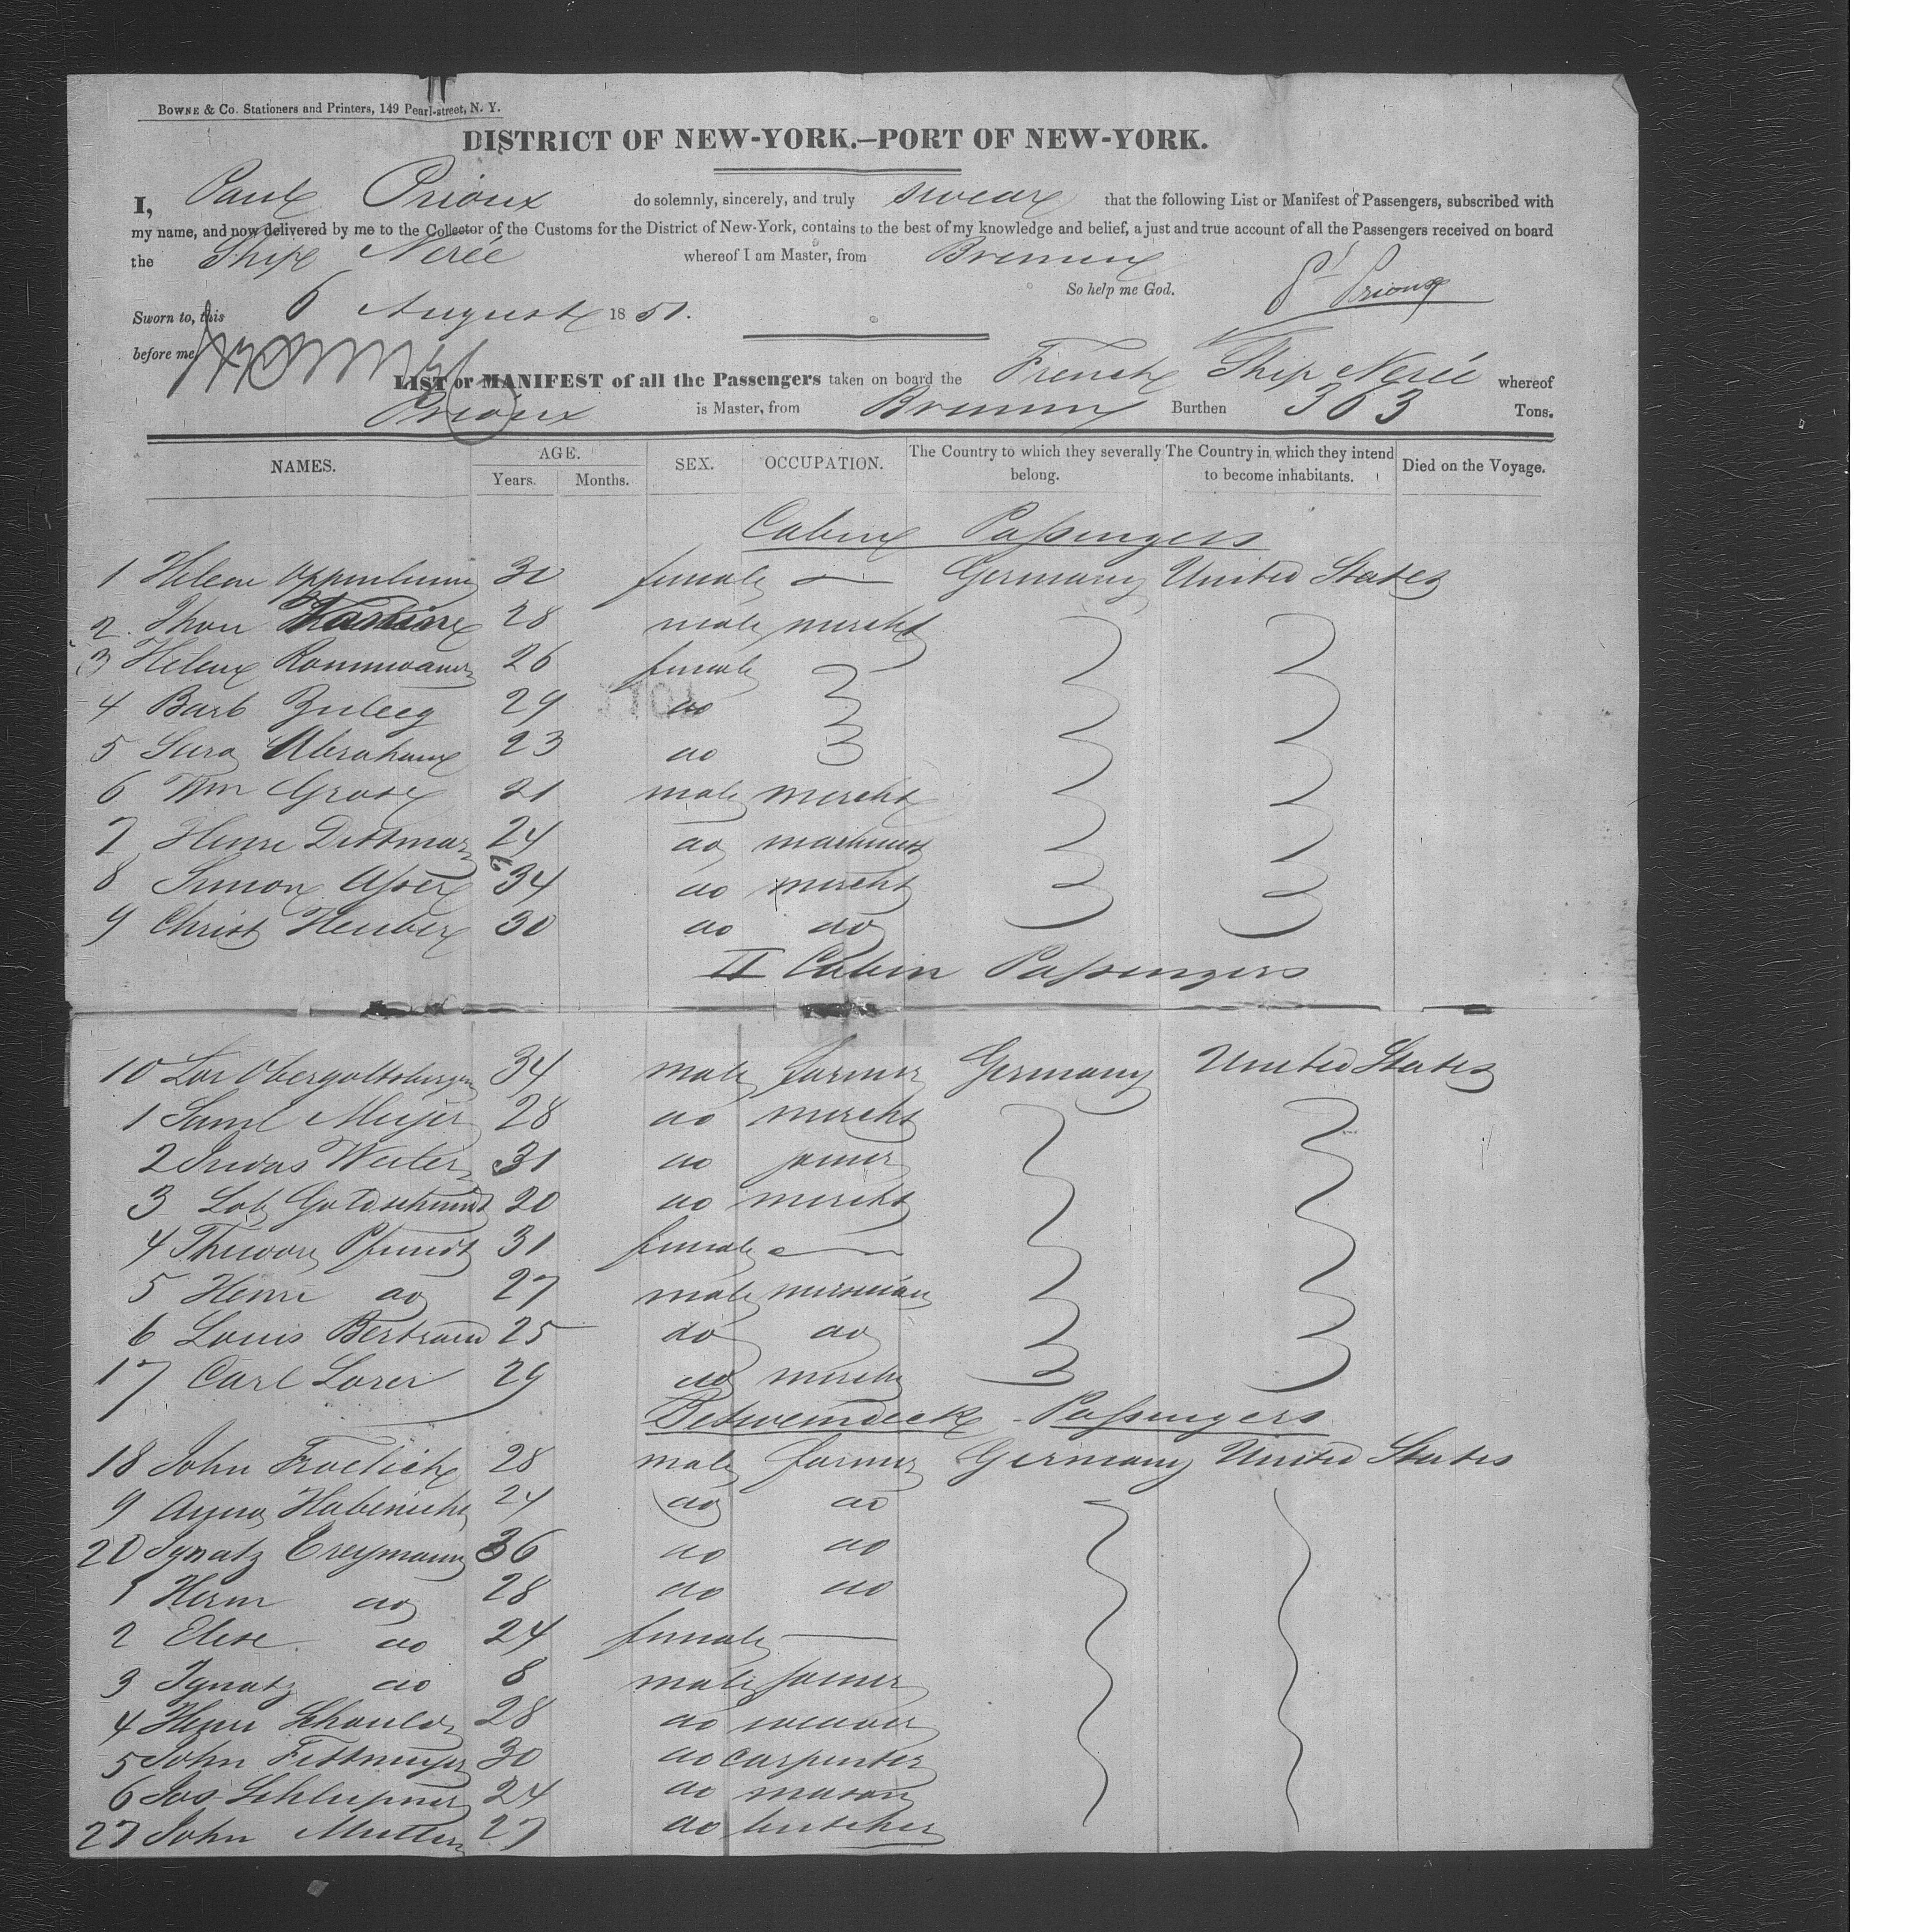 BOWNE & Co. Stationers and Printers, 149 Pearl-street, N. Y.
DISTRICT OF NEW-YORK.—PORT OF NEW-YORK.
I, Paul Prioux do solemnly, sincerely, and truly swear that the following List or Manifest of Passengers, subscribed with
my name, and now delivered by me to the Collector of the Customs for the District of New-York, contains to the best of my knowledge and belief, a just and true account of all the Passengers received on board
the Ship Nerée whereof I am Master, from Bremen
So help me God. P Prioux
Sworn to, this 6 August 1851.
before me,
LIST or MANIFEST of all the Passengers taken on board the French Ship Nerée whereof
Prioux is Master, from Bremen Burthen 363 Tons.
NAMES. AGE. Years. Months. SEX. OCCUPATION. The Country to which they severally belong. The Country in which they intend to become inhabitants. Died on the Voyage.
Cabin Passengers
1 Helene 30 female — Germany United States
2 28 male mercht
3 Helene 26 female
4 Barb 29 do
5 Sara Abraham 23 do
6 Wm Grose 21 male mercht
7 Henri Dittmar 24 do machinist
8 Simon Asser 34 do mercht
9 Christ Heuber 30 do do
II Cabin Passengers
10 34 male farmer Germany United States
1 Saml Meijer 28 do mercht
2 31 do joiner
3 Lob Goldschmidt 20 do mercht
4 31 female —
5 Henri do 27 male musician
6 Louis Bertrand 25 do do
17 Carl Lorer 29 do mercht
Betweendeck Passengers
18 John Froelich 28 male farmer Germany United States
9 Habenicht 24 do do
20 Ignatz Creymann 36 do do
1 Herm do 28 do do
2 Elise do 24 female —
3 Ignatz do 8 male joiner
4 Henri 28 do weaver
5 John 30 do carpenter
6 Jos 24 do mason
27 John 27 do butcher